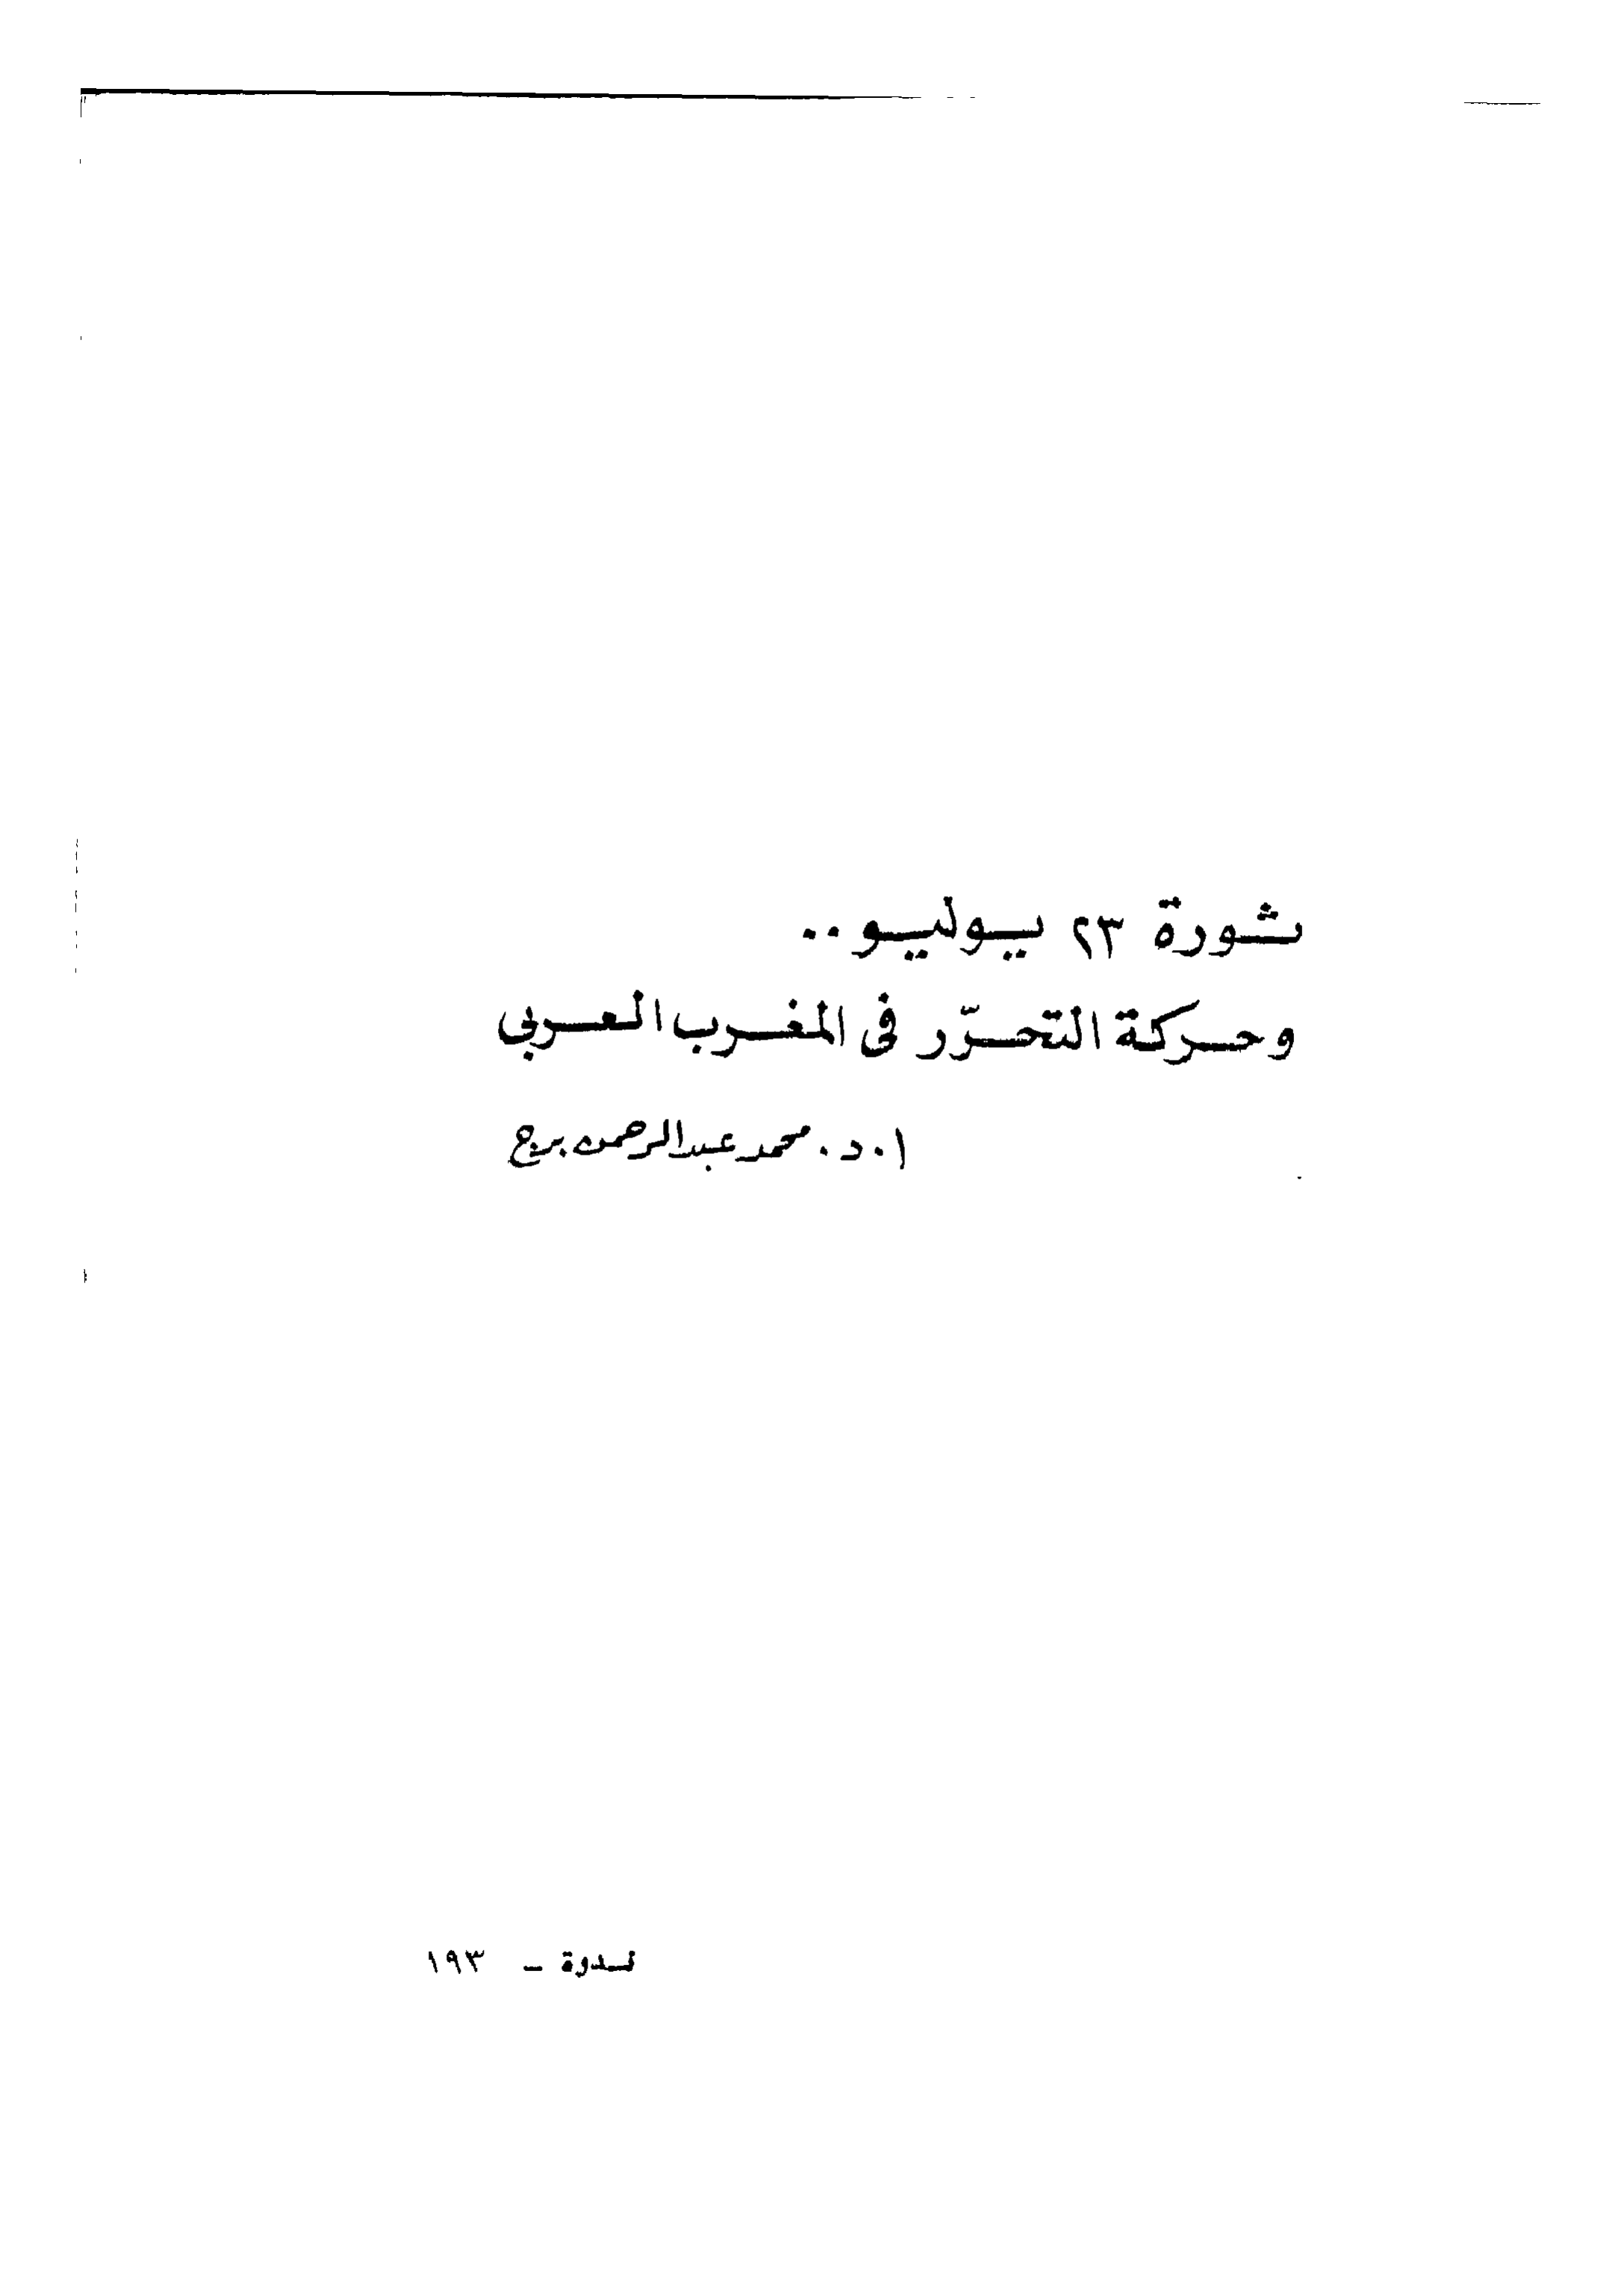 ثورة ٢٣ يوليو..
وحركة التحرّر في المغرب العربي
ا.د. محمد عبدالرحمن برج
ندوة - ١٩٣